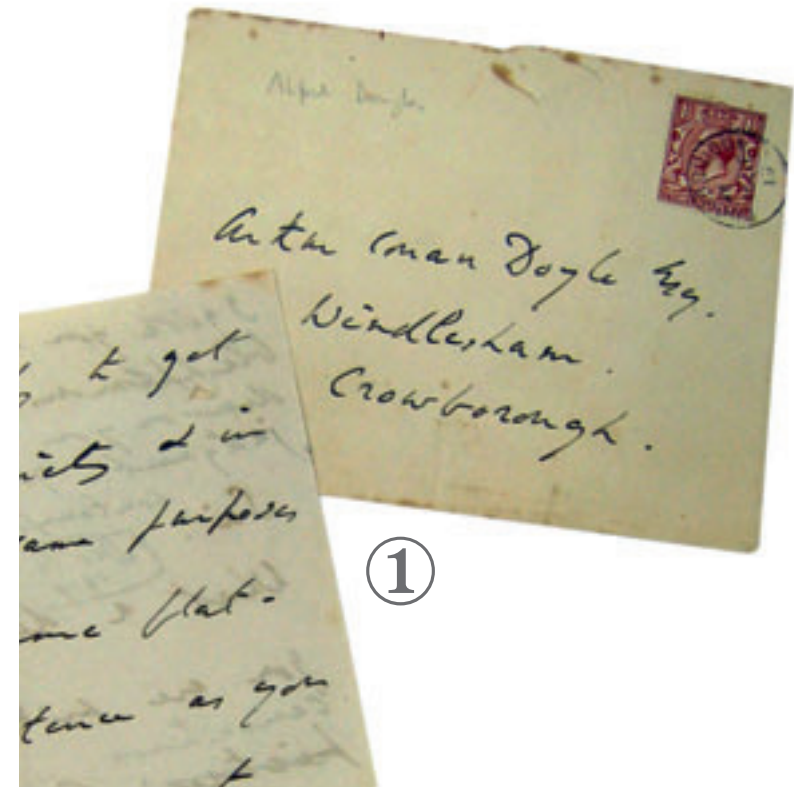 Alfred Douglas
Arthur Conan Doyle Esq.
Windlesham.
Crowborough.
to get
& in
same purposes
flat.
as you
①